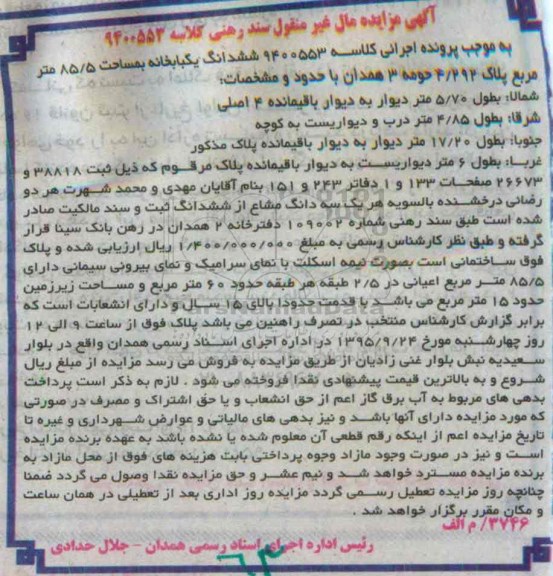 آگهی مزایده مال غیر منقول سند رهنی کلاسه ۹۴۰۰۵۵۳
به موجب پرونده اجرائی کلاسه ۹۴۰۰۵۵۳ ششدانگ یکبابخانه بمساحت ۸۵/۵ متر
مربع پلاک ۴/۲۹۲ حومه ۳ همدان با حدود و مشخصات:
شمالا: بطول ۵/۷۰ متر دیوار به دیوار باقیمانده ۴ اصلی
شرقا: بطول ۴/۸۵ متر درب و دیواریست به کوچه
جنوبا: بطول ۱۷/۲۰ متر دیوار به دیوار باقیمانده پلاک مذکور
غربا: بطول ۶ متر دیواریست به دیوار باقیمانده پلاک مرقوم که ذیل ثبت ۳۸۸۱۸ و
۲۶۶۷۳ صفحات ۱۳۳ و ۱ دفاتر ۲۴۳ و ۱۵۱ بنام آقایان مهدی و محمد شهرت هر دو
رضائی درخشنده بالسویه هر یک سه دانگ مشاع از ششدانگ ثبت و سند مالکیت صادر
شده است طبق سند رهنی شماره ۱۰۹۰۰۲ دفترخانه ۲ همدان در رهن بانک سینا قرار
گرفته و طبق نظر کارشناس رسمی به مبلغ ۱/۴۰۰/۰۰۰/۰۰۰ ریال ارزیابی شده و پلاک
فوق ساختمانی است بصورت نیمه اسکلت با نمای سرامیک و نمای بیرونی سیمانی دارای
۸۵/۵ متر مربع اعیانی در ۲/۵ طبقه هر طبقه حدود ۶۰ متر مربع و مساحت زیرزمین
حدود ۱۵ متر مربع می باشد با قدمت حدودا بالای ۱۵ سال و دارای انشعابات است که
برابر گزارش کارشناس منتخب در تصرف راهنین می باشد پلاک فوق از ساعت ۹ الی ۱۲
روز چهارشنبه مورخ ۱۳۹۵/۹/۲۴ در اداره اجرای اسناد رسمی همدان واقع در بلوار
سعیدیه نبش بلوار غنی زادیان از طریق مزایده به فروش می رسد مزایده از مبلغ ریال
شروع و به بالاترین قیمت پیشنهادی نقدا فروخته می شود . لازم به ذکر است پرداخت
بدهی های مربوط به آب برق گاز اعم از حق انشعاب و یا حق اشتراک و مصرف در صورتی
که مورد مزایده دارای آنها باشد و نیز بدهی های مالیاتی و عوارض شهرداری و غیره تا
تاریخ مزایده اعم از اینکه رقم قطعی آن معلوم شده یا نشده باشد به عهده برنده مزایده
است و نیز در صورت وجود مازاد وجوه پرداختی بابت هزینه های فوق از محل مازاد به
برنده مزایده مسترد خواهد شد و نیم عشر و حق مزایده نقدا وصول می گردد ضمنا
چنانچه روز مزایده تعطیل رسمی گردد مزایده روز اداری بعد از تعطیلی در همان ساعت
و مکان مقرر برگزار خواهد شد .
۳۷۴۶/ م الف
رئیس اداره اجرای اسناد رسمی همدان - جلال حدادی
۶۳